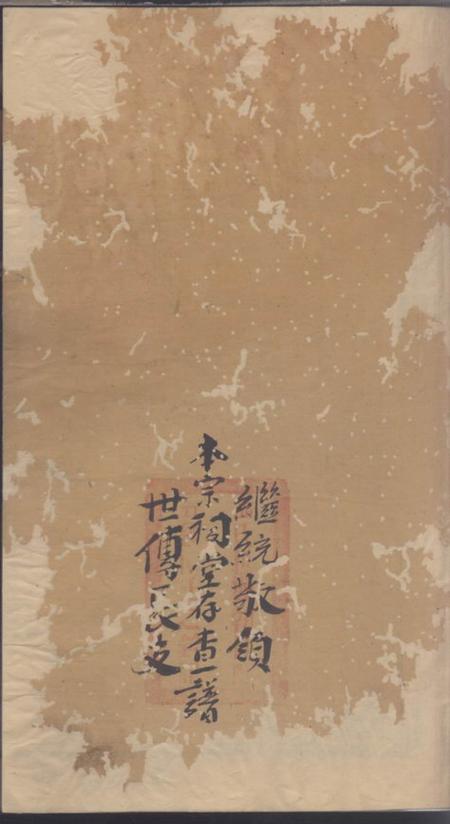 繼統敬領
本宗祠堂存查一譜
世傳民